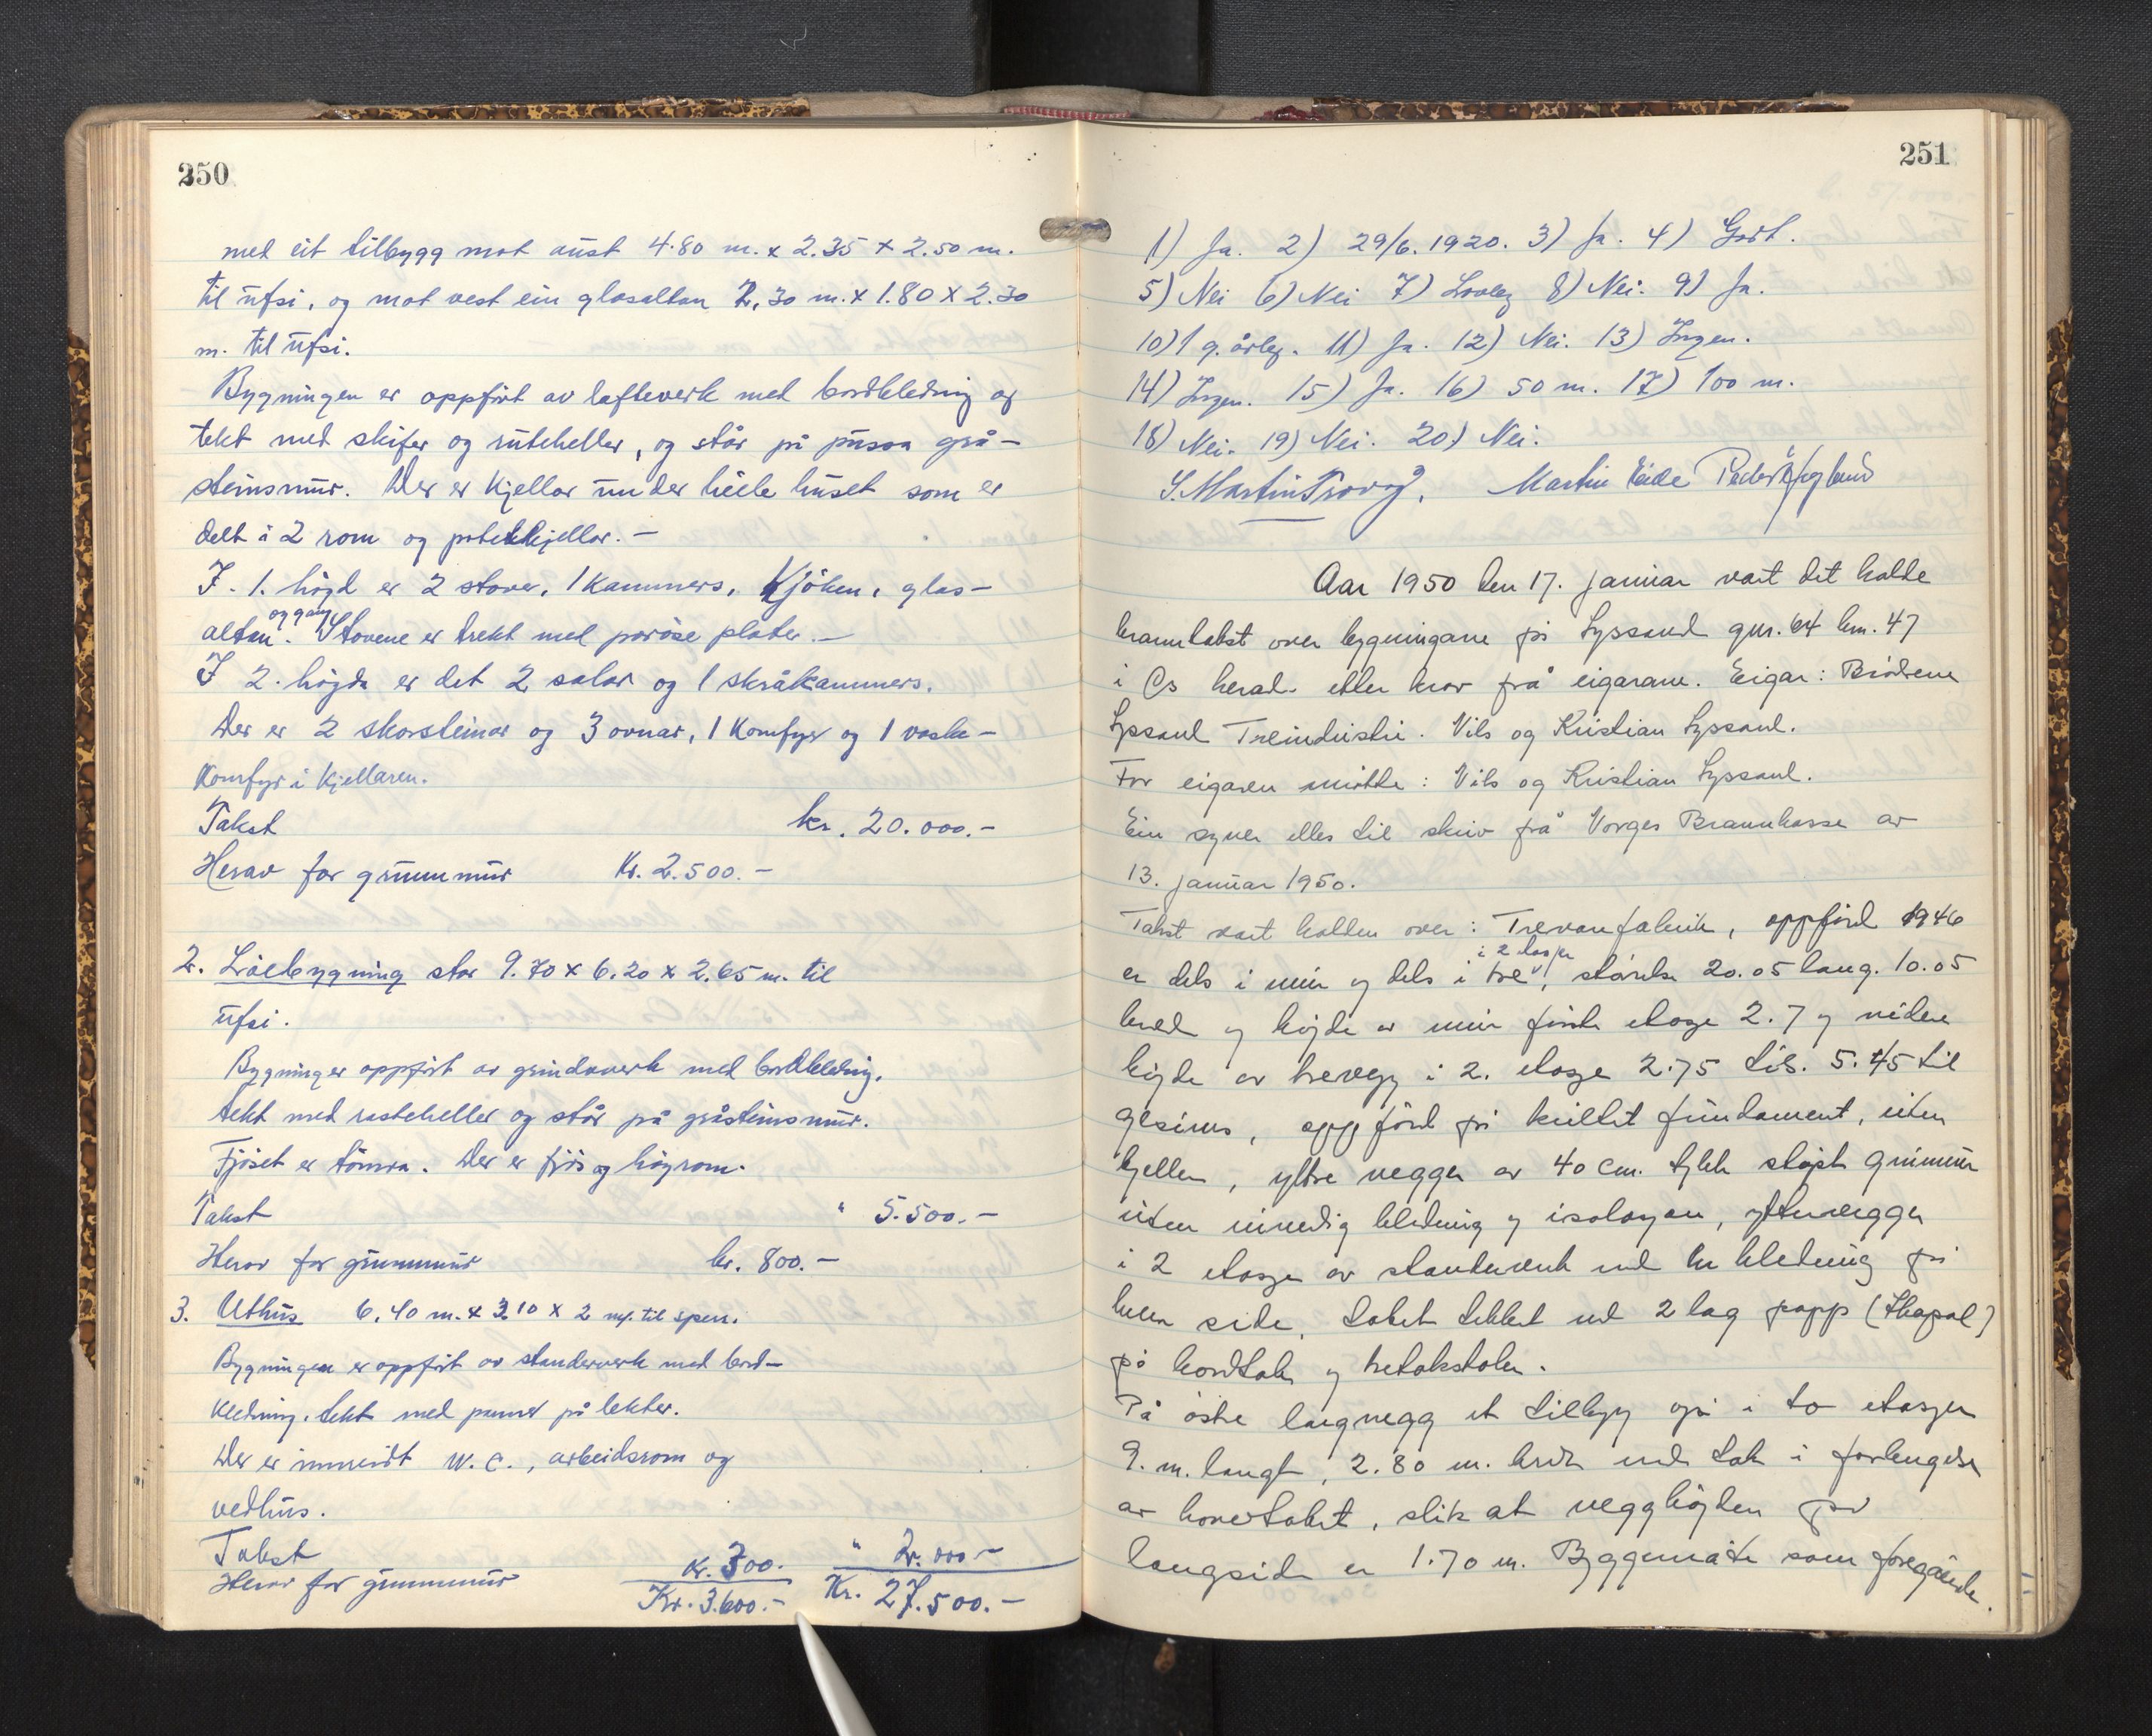 250
med eit tilbygg mot aust 4.80 m. x 2.35 x 2.50 m.
til ufsi, og mot vest ein glasaltan 2,30 m. x 1.80 x 2.30
m. til ufsi.
Bygningen er oppført av lafteverk med bordkledning og
tekt med skifer og ruteheller, og står på pussa grå-
steinsmur. Der er kjellar under heile huset som er
delt i 2 rom og potetkjellar. -
I. 1. högd er 2 stover, 1 kammers, kjöken, glas-
altan og gang. Stovene er trekt med poröse plater. -
I 2. högda er det 2 salar og 1 skråkammers.
Der er 2 skorsteinar og 3 ovnar, 1 Komfyr og 1 vaske-
komfyr i kjellaren.
Takst kr. 20.000.-
Herav for grunnmur Kr. 2.500. -
2. Löebygning stor 9.70 x 6.20 x 2.65 m. til
ufsi.
Bygninger oppfört av grindverk med bordkledning,
tekt med rasteheller og står på gråsteinsmur.
Fjöset er tömra. Der er fjös og högrom.
Takst " 5.500. -
Herav for grunnmur kr. 800. -
3. Uthus 6,40 m. x 3.10 x 2 m. til sperr.
Bygningen er oppfört av standerverk med bord-
kledning, tekt med panner på lekter.
Der er innreidt W.C., arbeidsrom og
vedhus.
Takst " 2.000 -
Herav for grunnmur Kr. 300.
Kr. 3.600. - Kr. 27.500. -
251
1) Ja. 2) 29/6. 1920. 3) Ja. 4) Godt.
5) Nei 6) Nei 7) Lovleg 8) Nei. 9) Ja.
10) 1 g. årleg. 11) Ja. 12) Nei. 13) Ingen.
14) Ingen. 15) Ja. 16) 50 m. 17) 100 m.
18) Nei. 19) Nei. 20) Nei.
S. Martin Martin Eide Peder
Aar 1950 den 17. januar vart det halde
branntakst over bygningane på Lyssand gnr. 64 bnr. 47
i Os herad etter krav frå eigarane. Eigar: Brödrene
Lyssand Treindustri. Nils og Kristian Lyssand.
For eigaren mötte: Nils og Kristian Lyssand.
Ein syner elles til skriv frå Norges Brannkasse av
13. januar 1950.
Takst vart halden over: Trevarefabrik, oppförd 1946
er dels i mur og dels i tre i 2 etasjer, störrelse 20.05 lang. 10.05
bred og höjde av mur förste etasje 2.7 og videre
höjde av trevegg i 2. etasje 2.75 tils. 5.45 til
gesims, oppförd på kullet fundament, uten
kjeller, yttre vegger av 40 cm. tykk stöpt grunnmur
uten innvendig kledning og isolasjon, yttervegger
i 2 etasje av standerverk med en kledning på
hver side. Taket tekket med 2 lag papp
på bordtak og tretakstoler.
På östre langvegg et tilbygg også i to etasjer
9. m. langt, 2.80 m. bredt med tak i forlengelse
av hovedtaket, slik at vegghöjden på
langside er 1.70 m. Byggemåte som foregående.